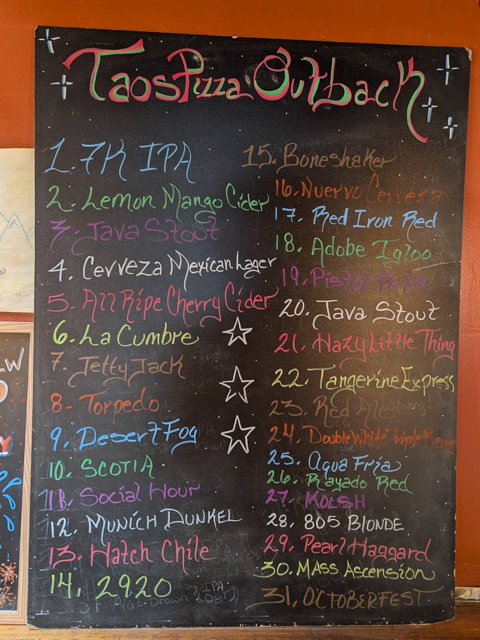 Taos Pizza Outback
1. 7K IPA
2. Lemon Mango Cider
3. Java Stout
4. Cerveza Mexican Lager
5. All Ripe Cherry Cider
6. La Cumbre
7. Jetty Jack
8. Torpedo
9. Desert Fog
10. SCOTIA
11. Social Hour
12. MUNICH DUNKEL
13. Hatch Chile
14. 2920
15. Boneshaker
16. Nuervo Cerveza
17. Red Iron Red
18. Adobe Igloo
19. Pistol
20. Java Stout
21. Hazy Little Thing
22. Tangerine Express
23. Red
24. Double White
25. Agua Fria
26. Rayado Red
27. KOLSH
28. 805 BLONDE
29. Pearl Haggard
30. MASS Ascension
31. OCTOBERFEST